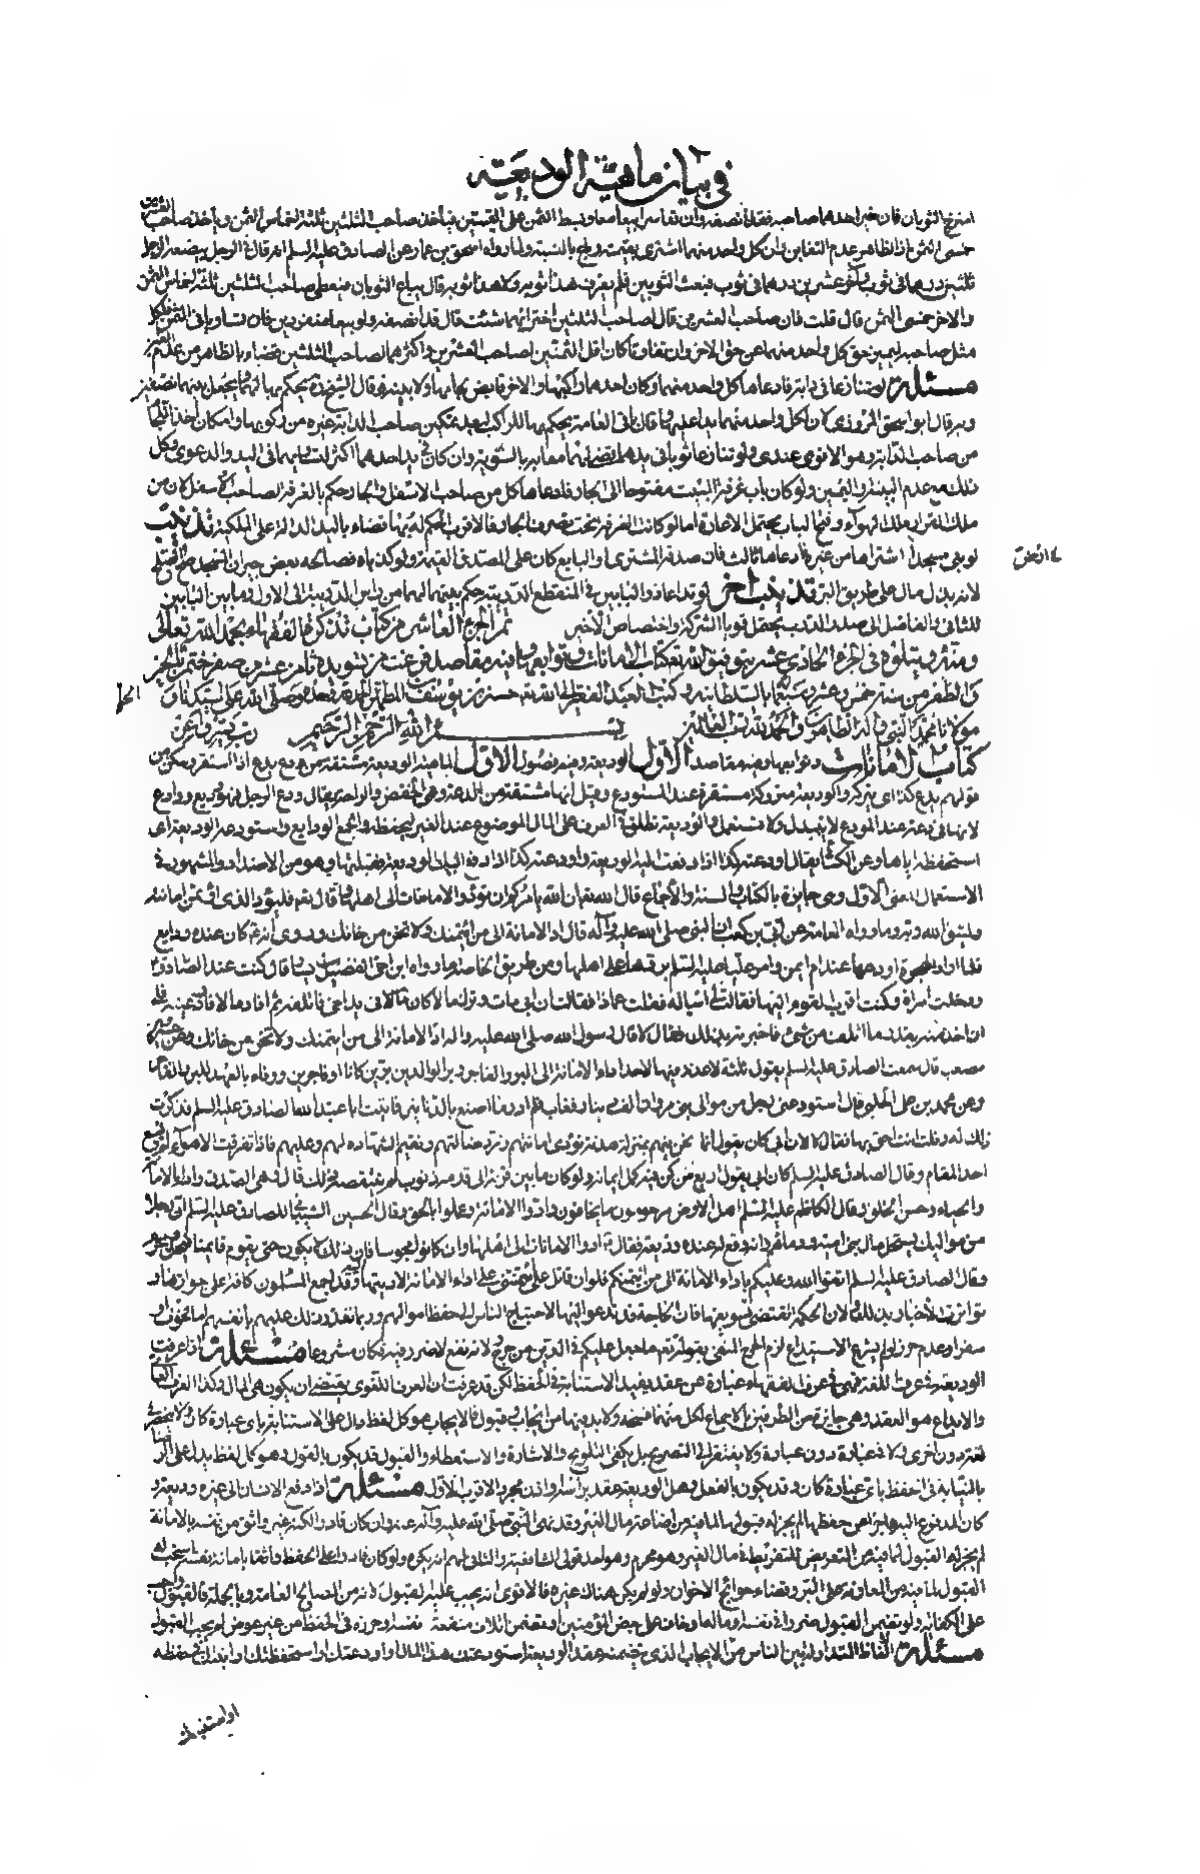 في بيان ماهية الوديعة
امتزج الثوبان فان خير احدهما صاحبه فقد انصفه وان تعاسرا بيعا معا وبسط الثمن على القيمتين فيأخذ صاحب الثلثين ثلثة اخماس الثمن ويأخذ صاحب العشرين
خمسي الثمن اذ الظاهر عدم التغابن وان كل واحد منهما اشترى بقيمته لما رواه اسحق بن عمار عن الصادق عليه السلم انه قال في الرجل يبضعه الرجل
ثلثين درهما في ثوب وآخر عشرين درهما في ثوب فبعث الثوبين فلم يعرف هذا ثوبه ولا هذا ثوبه قال يباع الثوبان فيعطى صاحب الثلثين ثلثة اخماس الثمن
والاخر خمسي الثمن قال قلت فان صاحب العشرين قال لصاحب الثلثين اختر ايهما شئت قال قد انصفه ولو بيعا منفردين فان تساويا في الثمن فلكل
مثل صاحبه ليميز حق كل واحد منهما عن حق الاخر وان تفاوتا كان اقل الثمنين لصاحب العشرين واكثرهما لصاحب الثلثين قضاء بالظاهر من عدم الغبن
مسئلة لو تنازعا في دابة فادعاها كل واحد منهما وكان احدهما راكبها والاخر قابض بلجامها ولا بينة قال الشيخ ره يحكم بها لهما ويجعل بينهما نصفين
وبه قال ابو اسحق المروزي لان لكل واحد منهما يدا عليها وقال باقي العامة يحكم بها للراكب
من صاحب الدابة وهو الاقوى عندي ولو تنازعا ثوبا في يدهما قضي لهما معا به بالسوية وان كان في يد احدهما اكثر لتساويهما في اليد والدعوى وكل
ذلك مع عدم البينة واليمين ولو كان باب غرفة البيت مفتوحا الى الجار فادعاها كل من صاحب الاسفل والجار حكم بالغرفة لصاحب الاسفل لان من
ملك القرار ملك الهواء وفتح الباب يحتمل الاعارة اما لو كانت الغرفة تحت تصرف الجار فالاقرب الحكم له بها قضاء باليد الدالة على الملكية تذنيب
لو بنى مسجدا اشتراها من غيره فادعاها ثالث فان صدقه المشتري او البايع كان على المصدق القيمة ولو كذباه فصالحه بعض جيران المسجد صح الصلح
لانه بذل مال على طريق البر تذنيب اخر لو تداعا
للثاني والفاضل الى صدر الدرب يحتمل قويا الشركة واختصاص الاخير تم الجزء العاشر من كتاب تذكرة الفقهاء بحمد الله تعالى
ومنه ويتلوه في الجزء الحادي عشر بتوفيق الله تع كتاب الامانات وتوابعها وفيه مقاصد فرغت من تسويده ثامن عشر من صفر ختم بالخير
والظفر من سنة خمس عشرة وسبعمائة بالسلطانية وكتب العبد الفقير الى الله تع حسن بن يوسف المطهر الحلي وصلى الله على سيدنا و
مولانا محمد النبي وآله الطاهرين والحمد لله رب العالمين بسم الله الرحمن الرحيم رب يسر واعن
كتاب الامانات وتوابعها وفيه مقاصد الاول الوديعة وفيه فصول الاول الماهية الوديعة مشتقة من ودع يدع اذا استقر وسكن من
قولهم يدع كذا اي يتركه والوديعة متروكة مستقرة عند المستودع وقيل انها مشتقة من الدعة وهي الخفض والراحة يقال ودع الرجل فهو وديع ووادع
لانها في دعة عند المودع لا تتبدل ولا تستعمل والوديعة تطلق في العرف على المال الموضوع عند الغير ليحفظه والجمع الودايع واستودعه الوديعة اي
استحفظه اياها وعن الكسائي يقال اودعته كذا اذا دفعت اليه الوديعة واودعته كذا اذا دفع اليك الوديعة فقبلتها وهو من الاضداد والمشهور في
الاستعمال المعنى الاول وهي جايزة بالكتاب والسنة والاجماع قال الله تعالى ان الله يأمركم ان تؤدوا الامانات الى اهلها وقال تع فليؤد الذي اؤتمن امانته
وليتق الله ربه وما رواه العامة عن ابي بن كعب ان النبي صلى الله عليه وآله قال اد الامانة الى من ائتمنك ولا تخن من خانك وروي انه كان عنده ودايع
فلما اراد الهجرة اودعها عند ام ايمن وامر عليا عليه السلم بردها على اهلها ومن طريق الخاصة ما رواه ابن اخي الفضيل بن يسار قال كنت عند الصادق ع
ودخلت امرأة وكنت اقرب القوم اليها فقالت لي اسأله فقلت عماذا فقالت ان ابي مات وترك مالا كان مالا في يد اخي فاتلفه ثم افاد مالا فاودعنيه فلي
ان اخذ منه بقدر ما اتلف من شيء فاخبرته بذلك فقال لا قال رسول الله صلى الله عليه وآله اد الامانة الى من ائتمنك ولا تخن من خانك وعن حسين بن
مصعب قال سمعت الصادق عليه السلم يقول ثلثة لا عذر فيها لاحد اداء الامانة الى البر والفاجر وبر الوالدين برين كانا او فاجرين ووفاء بالعهد للبر والفاجر
وعن محمد بن علي الحلبي قال استودعني رجل من موالي بني مروان الف دينار فغاب فلم ادر ما اصنع بالدنانير فاتيت ابا عبد الله الصادق عليه السلم فذكرت
ذلك له وقلت انت احق بها فقال لا لان ابي كان يقول انما نحن فيهم بمنزلة هدنة نؤدي امانتهم ونرد ضالتهم ونقيم الشهادة لهم وعليهم فاذا تفرقت الاهواء لم يسع
احد المقام وقال الصادق عليه السلم كان ابي يقول اربع من كن فيه كمل ايمانه ولو كان ما بين قرنه الى قدمه ذنوب لم ينقصه ذلك قال وهي الصدق واداء الامانة
والحياء وحسن الخلق وقال الكاظم عليه السلم اهل الارض مرحومون ما يخافون وادوا الامانة وعملوا بالحق وقال الحسين الشيباني للصادق عليه السلم ان رجلا
من مواليك يستحل مال بني امية ودماءهم وانه وقع لهم عنده وديعة فقال ع ادوا الامانات الى اهلها وان كانوا مجوسا فان ذلك لا يكون حتى يقوم قائمنا فيحل ويحرم
وقال الصادق عليه السلم اتقوا الله وعليكم باداء الامانة الى من ائتمنكم فلو ان قاتل علي ائتمنني على اداء الامانة لاديتها وقد اجمع المسلمون كافة على جوازها و
تواترت الاخبار بذلك ولان الحكمة تقتضي تسويغها فان الحاجة قد تدعو اليها لاحتياج الناس الى حفظ اموالهم وربما تعذر ذلك عليهم بأنفسهم اما لخوف او
سفر او عدم حرز فلو لم يشرع الاستيداع لزم الحرج المنفي بقوله تع ما جعل عليكم في الدين من حرج ولانه نفع لا ضرر فيه فكان مشروعا مسئلة اذا عرفت
الوديعة في عرف اللغة فهي في عرف الفقهاء عبارة عن عقد يفيد الاستنابة في الحفظ لكن قد عرفت ان العرف اللغوي يقتضي ان يكون هي المال وكذا العرف العام
والايداع هو العقد وهي جايزة من الطرفين بالاجماع لكل منهما فسخه ولا بد فيها من ايجاب وقبول فالايجاب هو كل لفظ دال على الاستنابة باي عبارة كان ولا ينحصر في
لغة دون اخرى ولا في عبارة دون عبارة ولا يفتقر الى التصريح بل يكفي التلويح والاشارة والاستعطاء والقبول قد يكون بالقول وهو كل لفظ يدل على الرضا
بالنيابة في الحفظ باي عبارة كان وقد يكون بالفعل وهل الوديعة عقد برأسه او اذن مجرد الاقرب الاول مسئلة اذا دفع الانسان الى غيره وديعة و
كان المدفوع اليه عاجزا عن حفظها لم يجز له قبولها لما فيه من اضاعة مال الغير وقد نهى النبي صلى الله عليه وآله عنه وان كان قادرا لكنه غير واثق من نفسه بالامانة
لم يجز له القبول لما فيه من التعريض للتفريط في مال الغير وهو محرم وهو احد قولي الشافعية والثاني لهم انه يكره ولو كان قادرا على الحفظ واثقا بامانة نفسه استحب له
القبول لما فيه من المعاونة على البر وقضاء حوائج الاخوان ولو لم يكن هناك غيره فالاقوى انه يجب عليه القبول لانه من المصالح العامة وبالجملة فالقبول واجب
على الكفاية ولو تضمن القبول ضررا في نفسه او ماله او خاف على بعض المؤمنين او تضمن اتلاف منفعة نفسه وحرزه في الحفظ من غير عوض لم يجب القبول
مسئلة الفاظ المتداولة بين الناس من الايجاب الذي يتضمنه عقد الوديعة استودعتك هذا المال او اودعتك او استحفظتك او انبتك في حفظه
او استنبتك